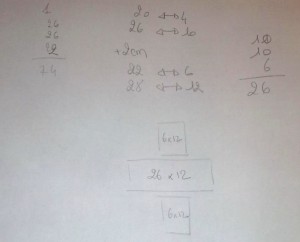 1
26
26
12
74
20 ↔ 4
26 ↔ 10
+2cm
22 ↔ 6
28 ↔ 12
10
10
6
26
6x12
26 x 12
6x12